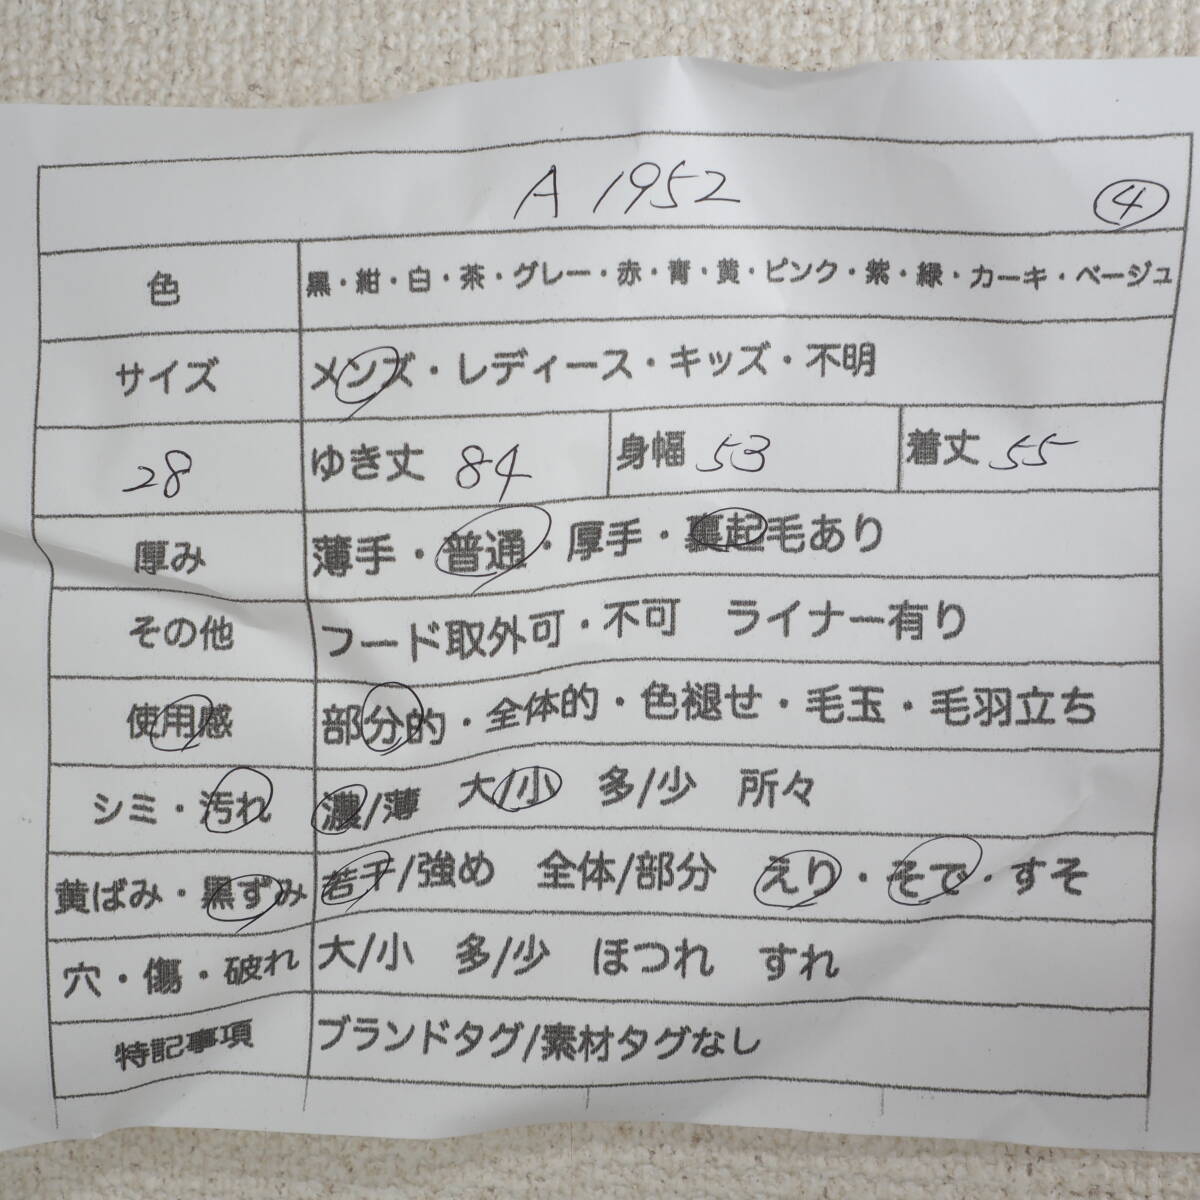 A 1952 ④
色 黒・紺・白・茶・グレー・赤・青・黄・ピンク・紫・緑・カーキ・ベージュ
サイズ メンズ・レディース・キッズ・不明
28 ゆき丈 84 身幅 53 着丈 55
厚み 薄手・普通・厚手・裏起毛あり
その他 フード取外可・不可 ライナー有り
使用感 部分的・全体的・色褪せ・毛玉・毛羽立ち
シミ・汚れ 濃/薄 大/小 多/少 所々
黄ばみ・黒ずみ 若干/強め 全体/部分 えり・そで・すそ
穴・傷・破れ 大/小 多/少 ほつれ すれ
特記事項 ブランドタグ/素材タグなし